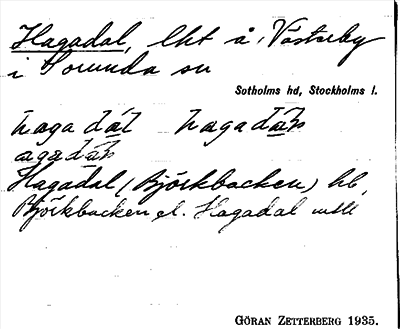 Hagadal, lht å Västerby
i Sorunda sn
Sotholms hd, Stockholms l.
hagadál hagadáɫ
agadáɫ
Hagadal (Björkbacken) hb,
Björkbacken el. Hagadal
GÖRAN ZETTERBERG 1935.